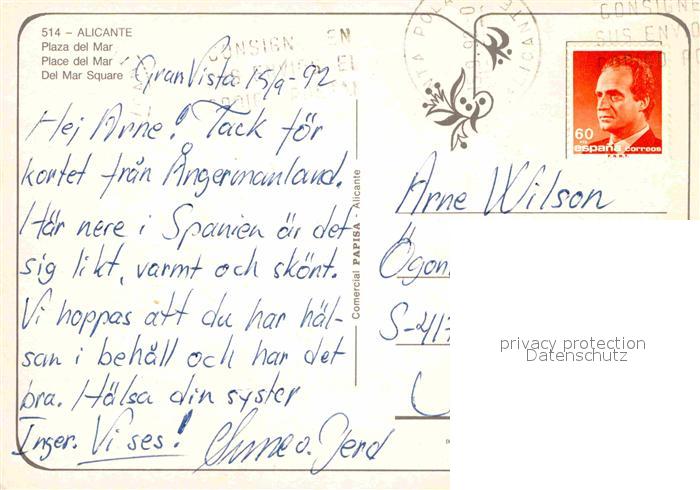 514 – ALICANTE
Plaza del Mar
Place del Mar
Del Mar Square
CONSIGNE EN
SUS ENVIOS EL
CONSIGNE
SUS ENVIO
GranVista 15/9-92
Hej Arne! Tack för
kortet från Ångermanland.
Här nere i Spanien är det
sig likt, varmt och skönt.
Vi hoppas att du har häl-
san i behåll och har det
bra. Hälsa din syster
Inger. Vi ses!
Comercial PAPISA - Alicante
60
PTS
españa correos
F.N.M.T.
Arne Wilson
S-417
privacy protection
Datenschutz